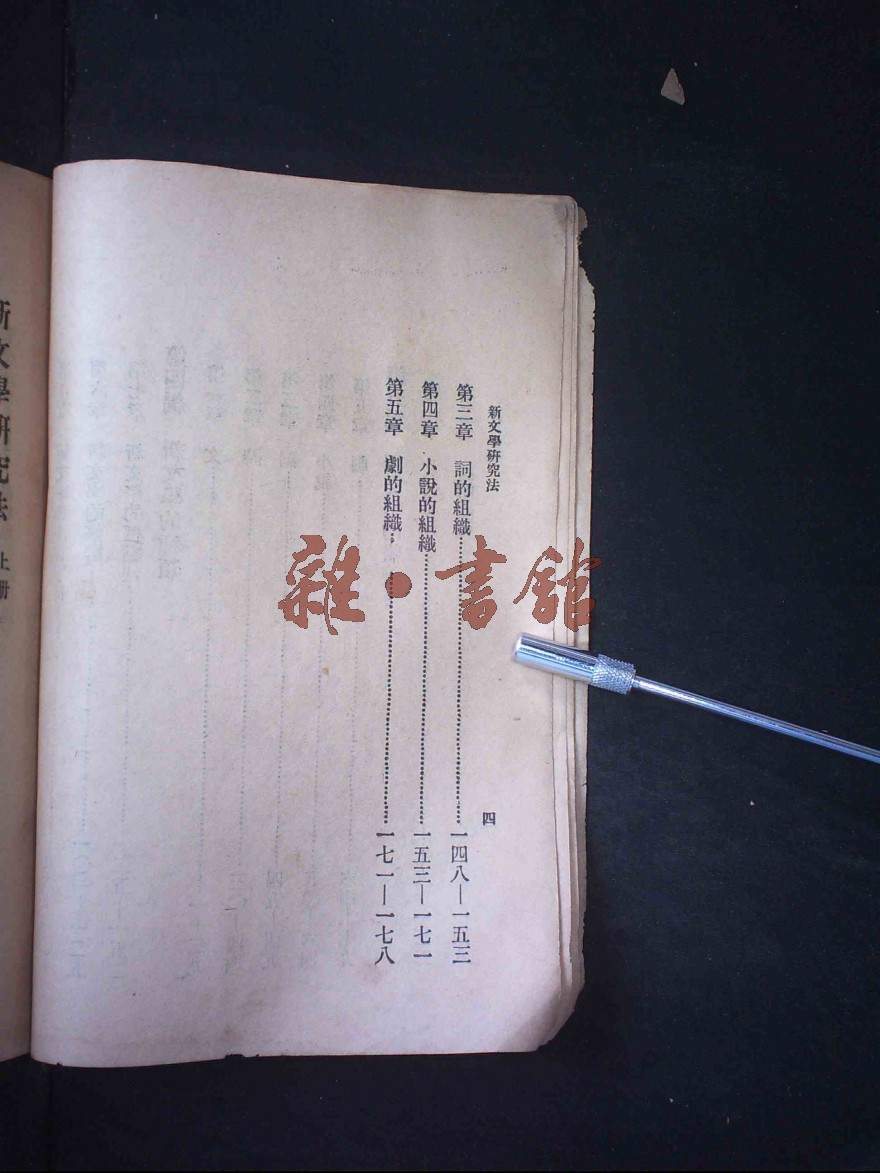 新文學研究法
四
第三章 詞的組織……一四八—一五三
第四章 小說的組織……一五三—一七一
第五章 劇的組織……一七一—一七八
新文學研究法 上册
雜·書館